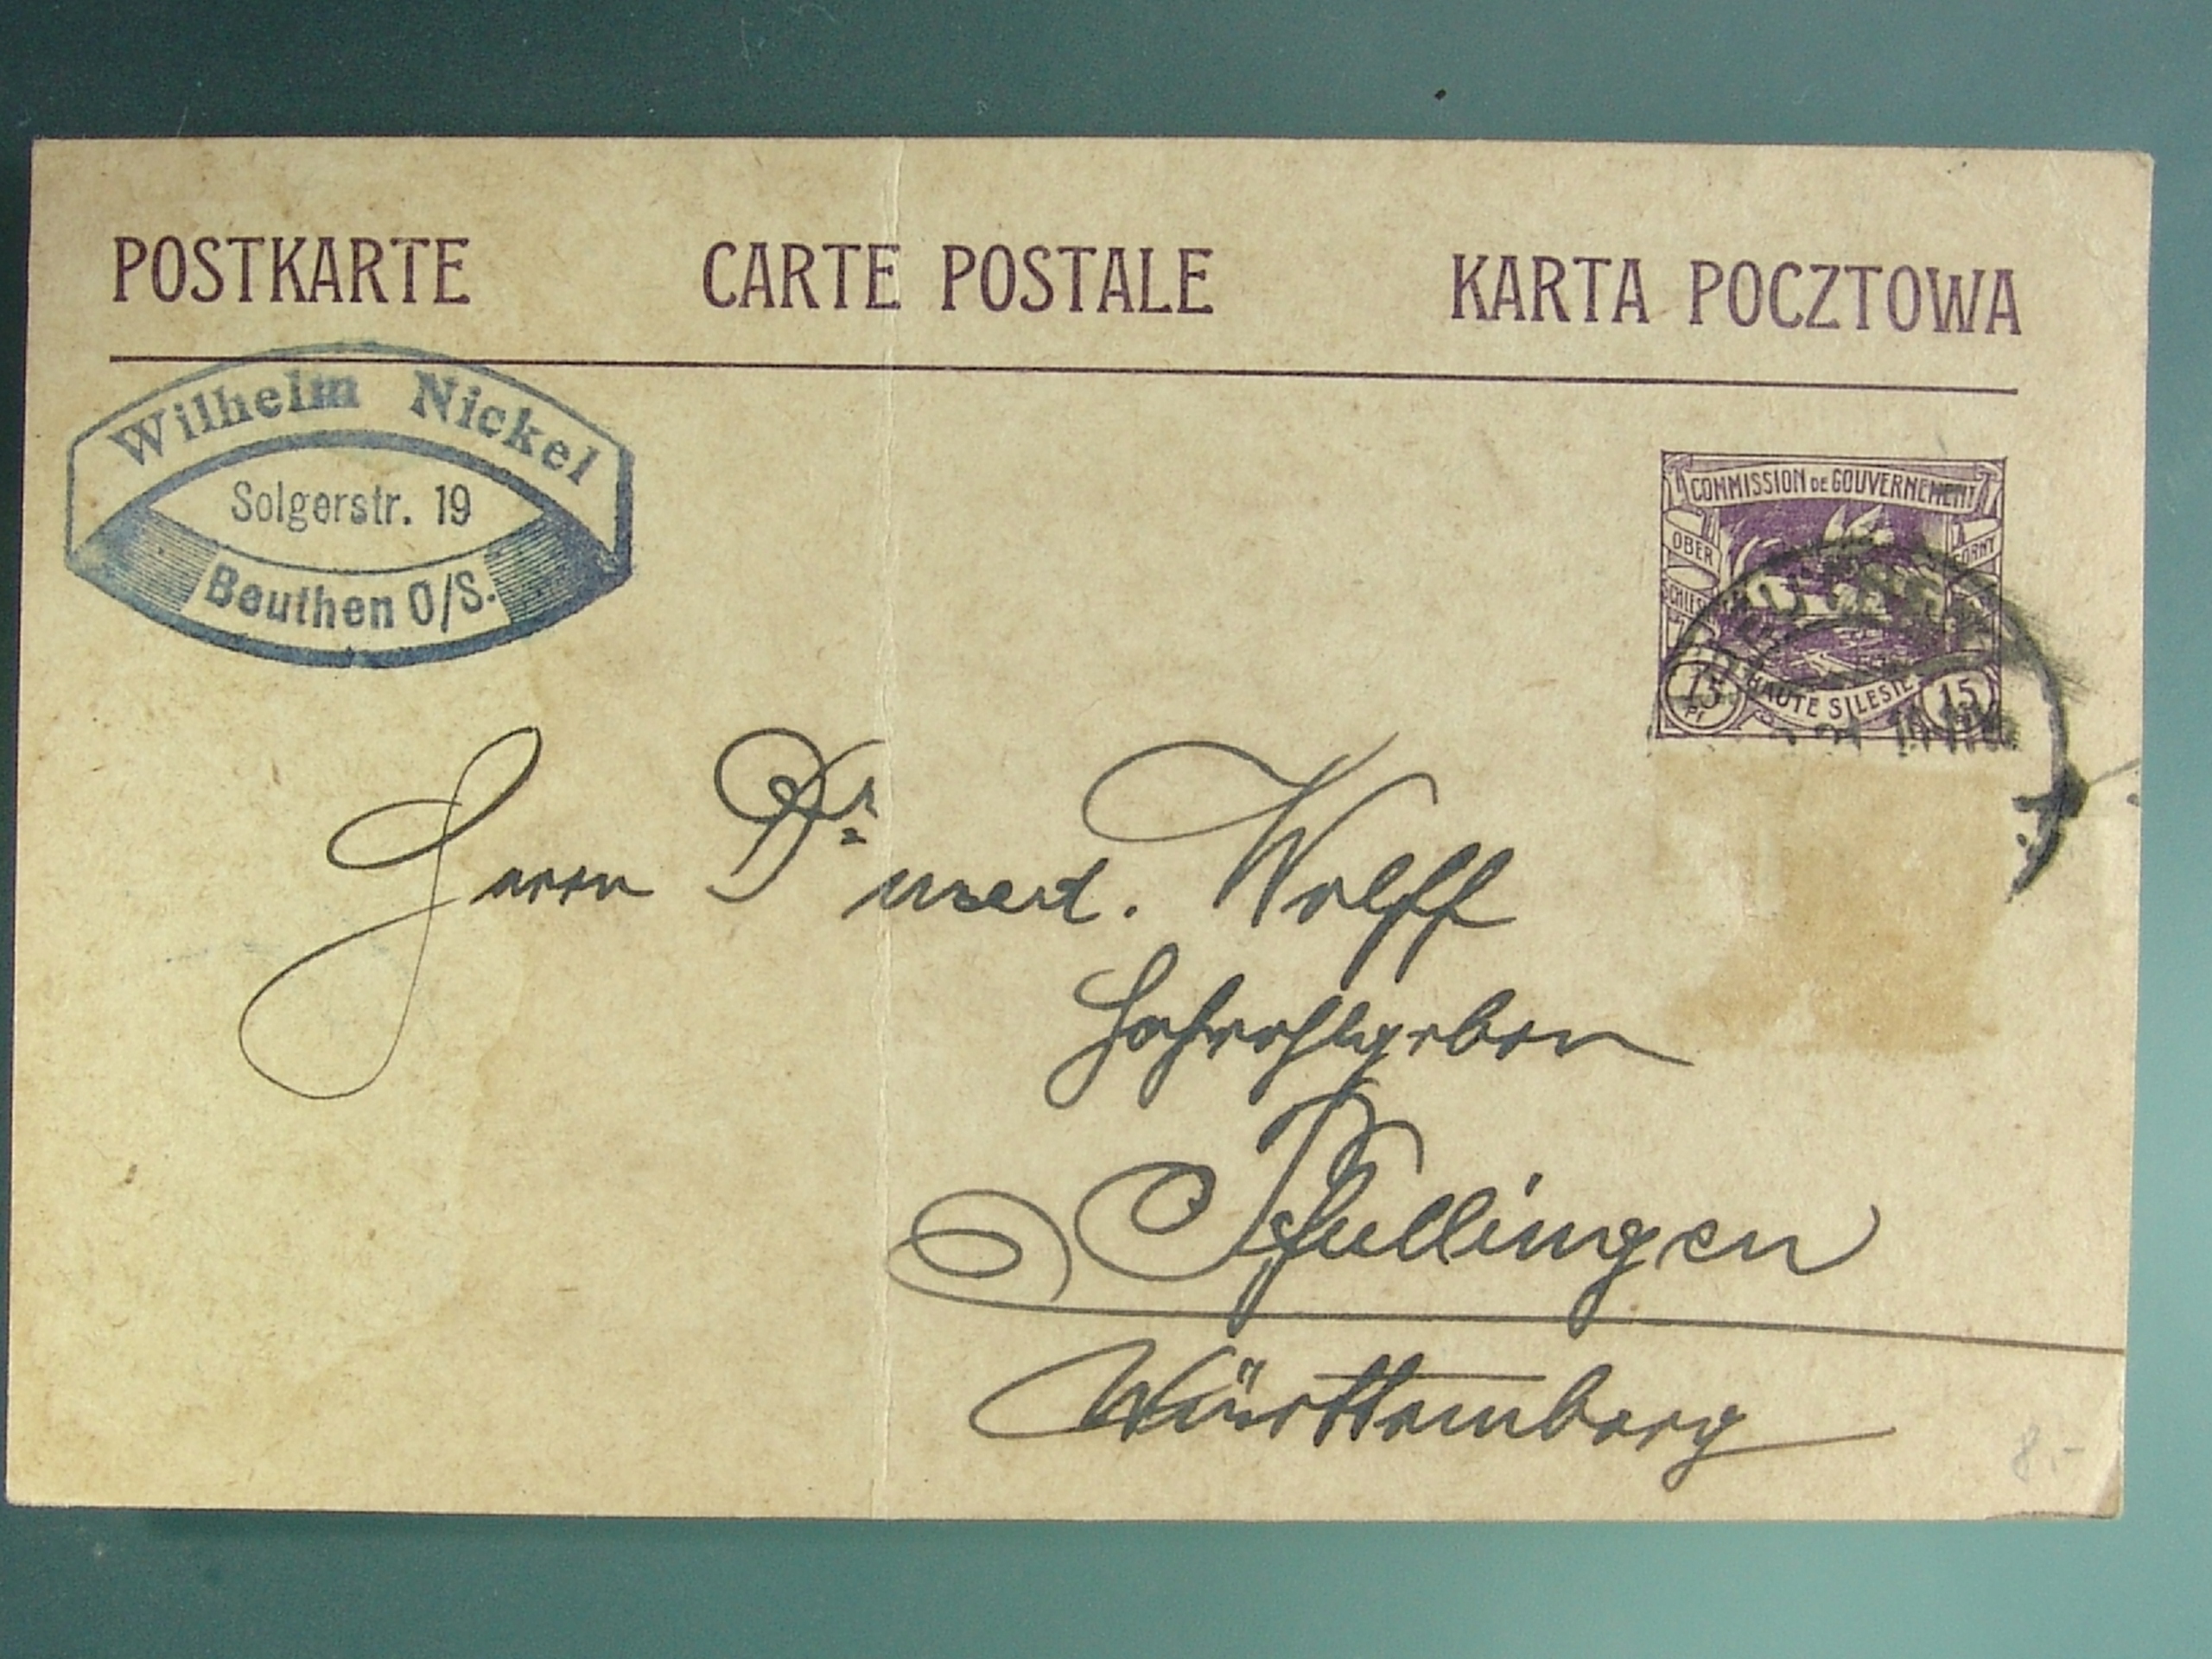 POSTKARTE CARTE POSTALE KARTA POCZTOWA
Wilhelm Nickel
Solgerstr. 19
Beuthen O/S.
COMMISSION DE GOUVERNEMENT
OBER
SCHLES
GORNY
15 HAUTE SILESIE 15
Pf
Herrn Dr. med. Wolff
Hochwohlgeboren
Pfullingen
Württemberg
8.-